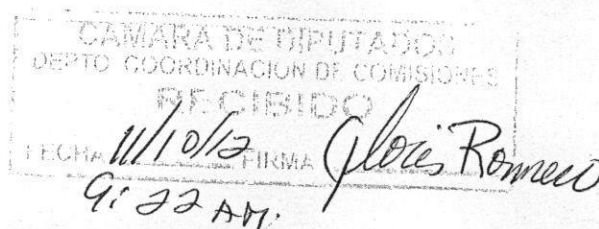 CAMARA DE DIPUTADOS
DEPTO COORDINACION DE COMISIONES
RECIBIDO
FECHA 11/10/12 FIRMA Gloris Romero
9:22 AM.